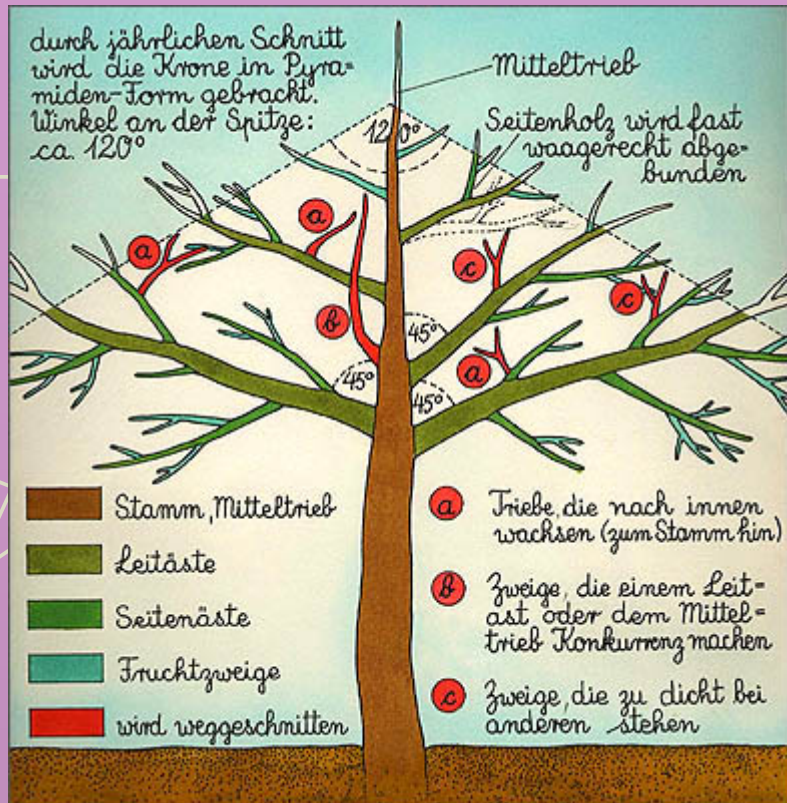 durch jährlichen Schnitt
wird die Krone in Pyra=
miden-Form gebracht.
Winkel an der Spitze:
ca. 120°
Mitteltrieb
120°
Seitenholz wird fast
waagerecht abge=
bunden
a
a
c
c
b
45°
a
45°
45°
Stamm, Mitteltrieb
Leitäste
Seitenäste
Fruchtzweige
wird weggeschnitten
a Triebe, die nach innen
wachsen (zum Stamm hin)
b Zweige, die einem Leit=
ast oder dem Mittel=
trieb Konkurrenz machen
c Zweige, die zu dicht bei
anderen stehen